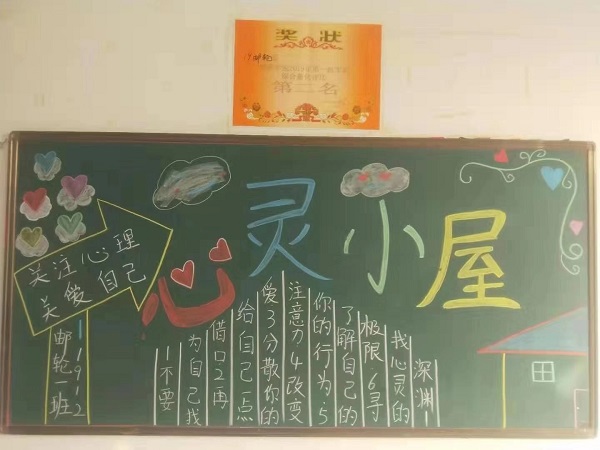 奖状
第二名
心灵小屋
关注心理
关爱自己
1912
邮轮一班
1不要
为自己找
借口2再
给自己一点
爱3分散你的
注意力4改变
你的行为·5
了解自己的
极限·6寻
找心灵的
深渊